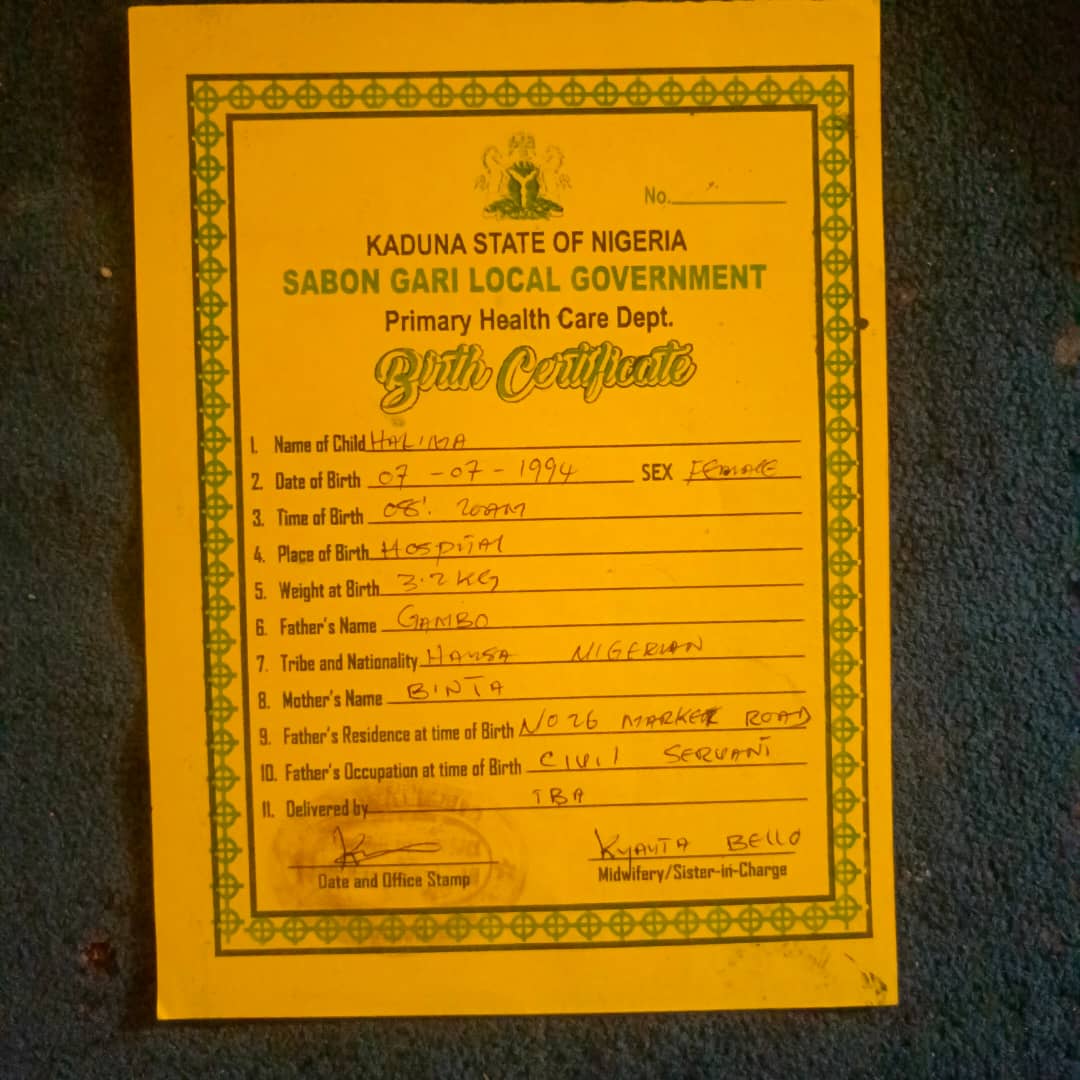 No.
KADUNA STATE OF NIGERIA
SABON GARI LOCAL GOVERNMENT
Primary Health Care Dept.
Birth Certificate
1. Name of Child HALIMA
2. Date of Birth 07-07-1994 SEX FEMALE
3. Time of Birth 08:20AM
4. Place of Birth HOSPITAL
5. Weight at Birth 3.2KG
6. Father's Name GAMBO
7. Tribe and Nationality HAUSA NIGERIAN
8. Mother's Name BINTA
9. Father's Residence at time of Birth NO 26 MARKET ROAD
10. Father's Occupation at time of Birth CIVIL SERVANT
11. Delivered by TBA
KYAUTA BELLO
Date and Office Stamp Midwifery/Sister-in-Charge